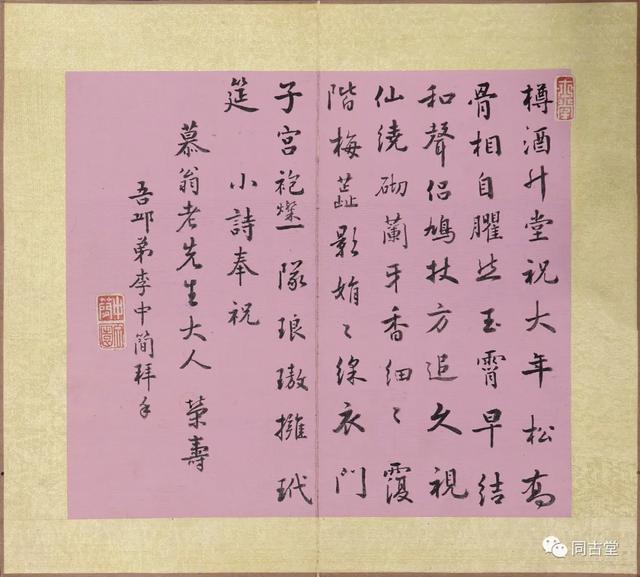 樽酒升堂祝大年松高
骨相自臞然玉霄早結
和聲侣鳩杖方追久視
仙繞砌蘭牙香細〻霞
階梅蕋影娟〻綵衣門
子宮袍燦一隊琅璈擁玳
筵 小詩奉祝
慕翁老先生大人 榮壽
吾邱弟李中簡拜手
同古堂